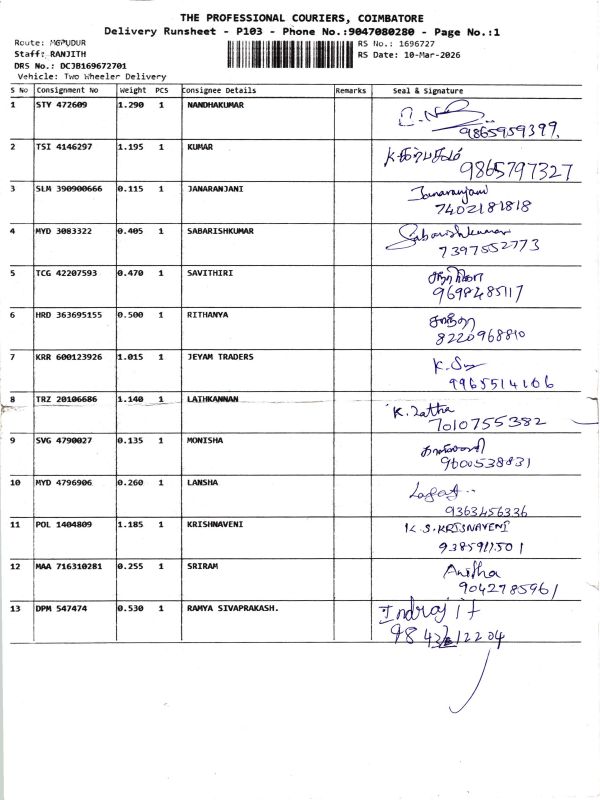 THE PROFESSIONAL COURIERS, COIMBATORE
Delivery Runsheet - P103 - Phone No.:9047080280 - Page No.:1
Route: MGPUDUR
Staff: RANJITH
DRS No.: DCJB169672701
Vehicle: Two Wheeler Delivery
RS No.: 1696727
RS Date: 10-Mar-2026
S No Consignment No Weight PCS Consignee Details Remarks Seal & Signature
1 STY 472609 1.290 1 NANDHAKUMAR
9865959399.
2 TSI 4146297 1.195 1 KUMAR
9865797327
3 SLM 390900666 0.115 1 JANARANJANI Janaranjani
7402181818
4 MYD 3083322 0.405 1 SABARISHKUMAR Sabarishkumar
7397552773
5 TCG 42207593 0.470 1 SAVITHIRI
9698485117
6 HRD 363695155 0.500 1 RITHANYA சாந்தா
8220968810
7 KRR 600123926 1.015 1 JEYAM TRADERS
9965514106
8 TRZ 20106686 1.140 1 LATHKANNAN K. Latha
7010755382
9 SVG 4790027 0.135 1 MONISHA
9600538831
10 MYD 4796906 0.260 1 LANSHA
9363456336
11 POL 1404809 1.185 1 KRISHNAVENI K.S.KRISNAVENI
9385911501
12 MAA 716310281 0.255 1 SRIRAM Anitha
9042785961
13 DPM 547474 0.530 1 RAMYA SIVAPRAKASH. Indrajit